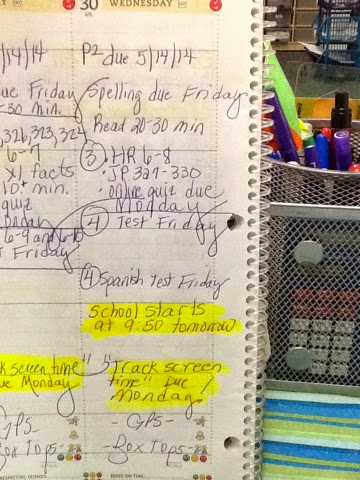 30 WEDNESDAY
/14/14
P2 due 5/14/14
ue Friday
-30 min.
Spelling due Friday
Read 20-30 min
326, 323, 32
6-7
X1 facts
10+ min.
quiz
onday
6-9 and 6-10
t Friday
③ · HR 6-8
· JP 327-330
· online quiz due
Monday
④ Test Friday
④ Spanish Test Friday
school starts
at 9:50 tomorrow
ck screen time"
ue Monday
"Track screen
time" Due
Monday!
GPS-
Box Tops-
- GPS -
- Box Tops -
RESPECTING
BEING ON TIME